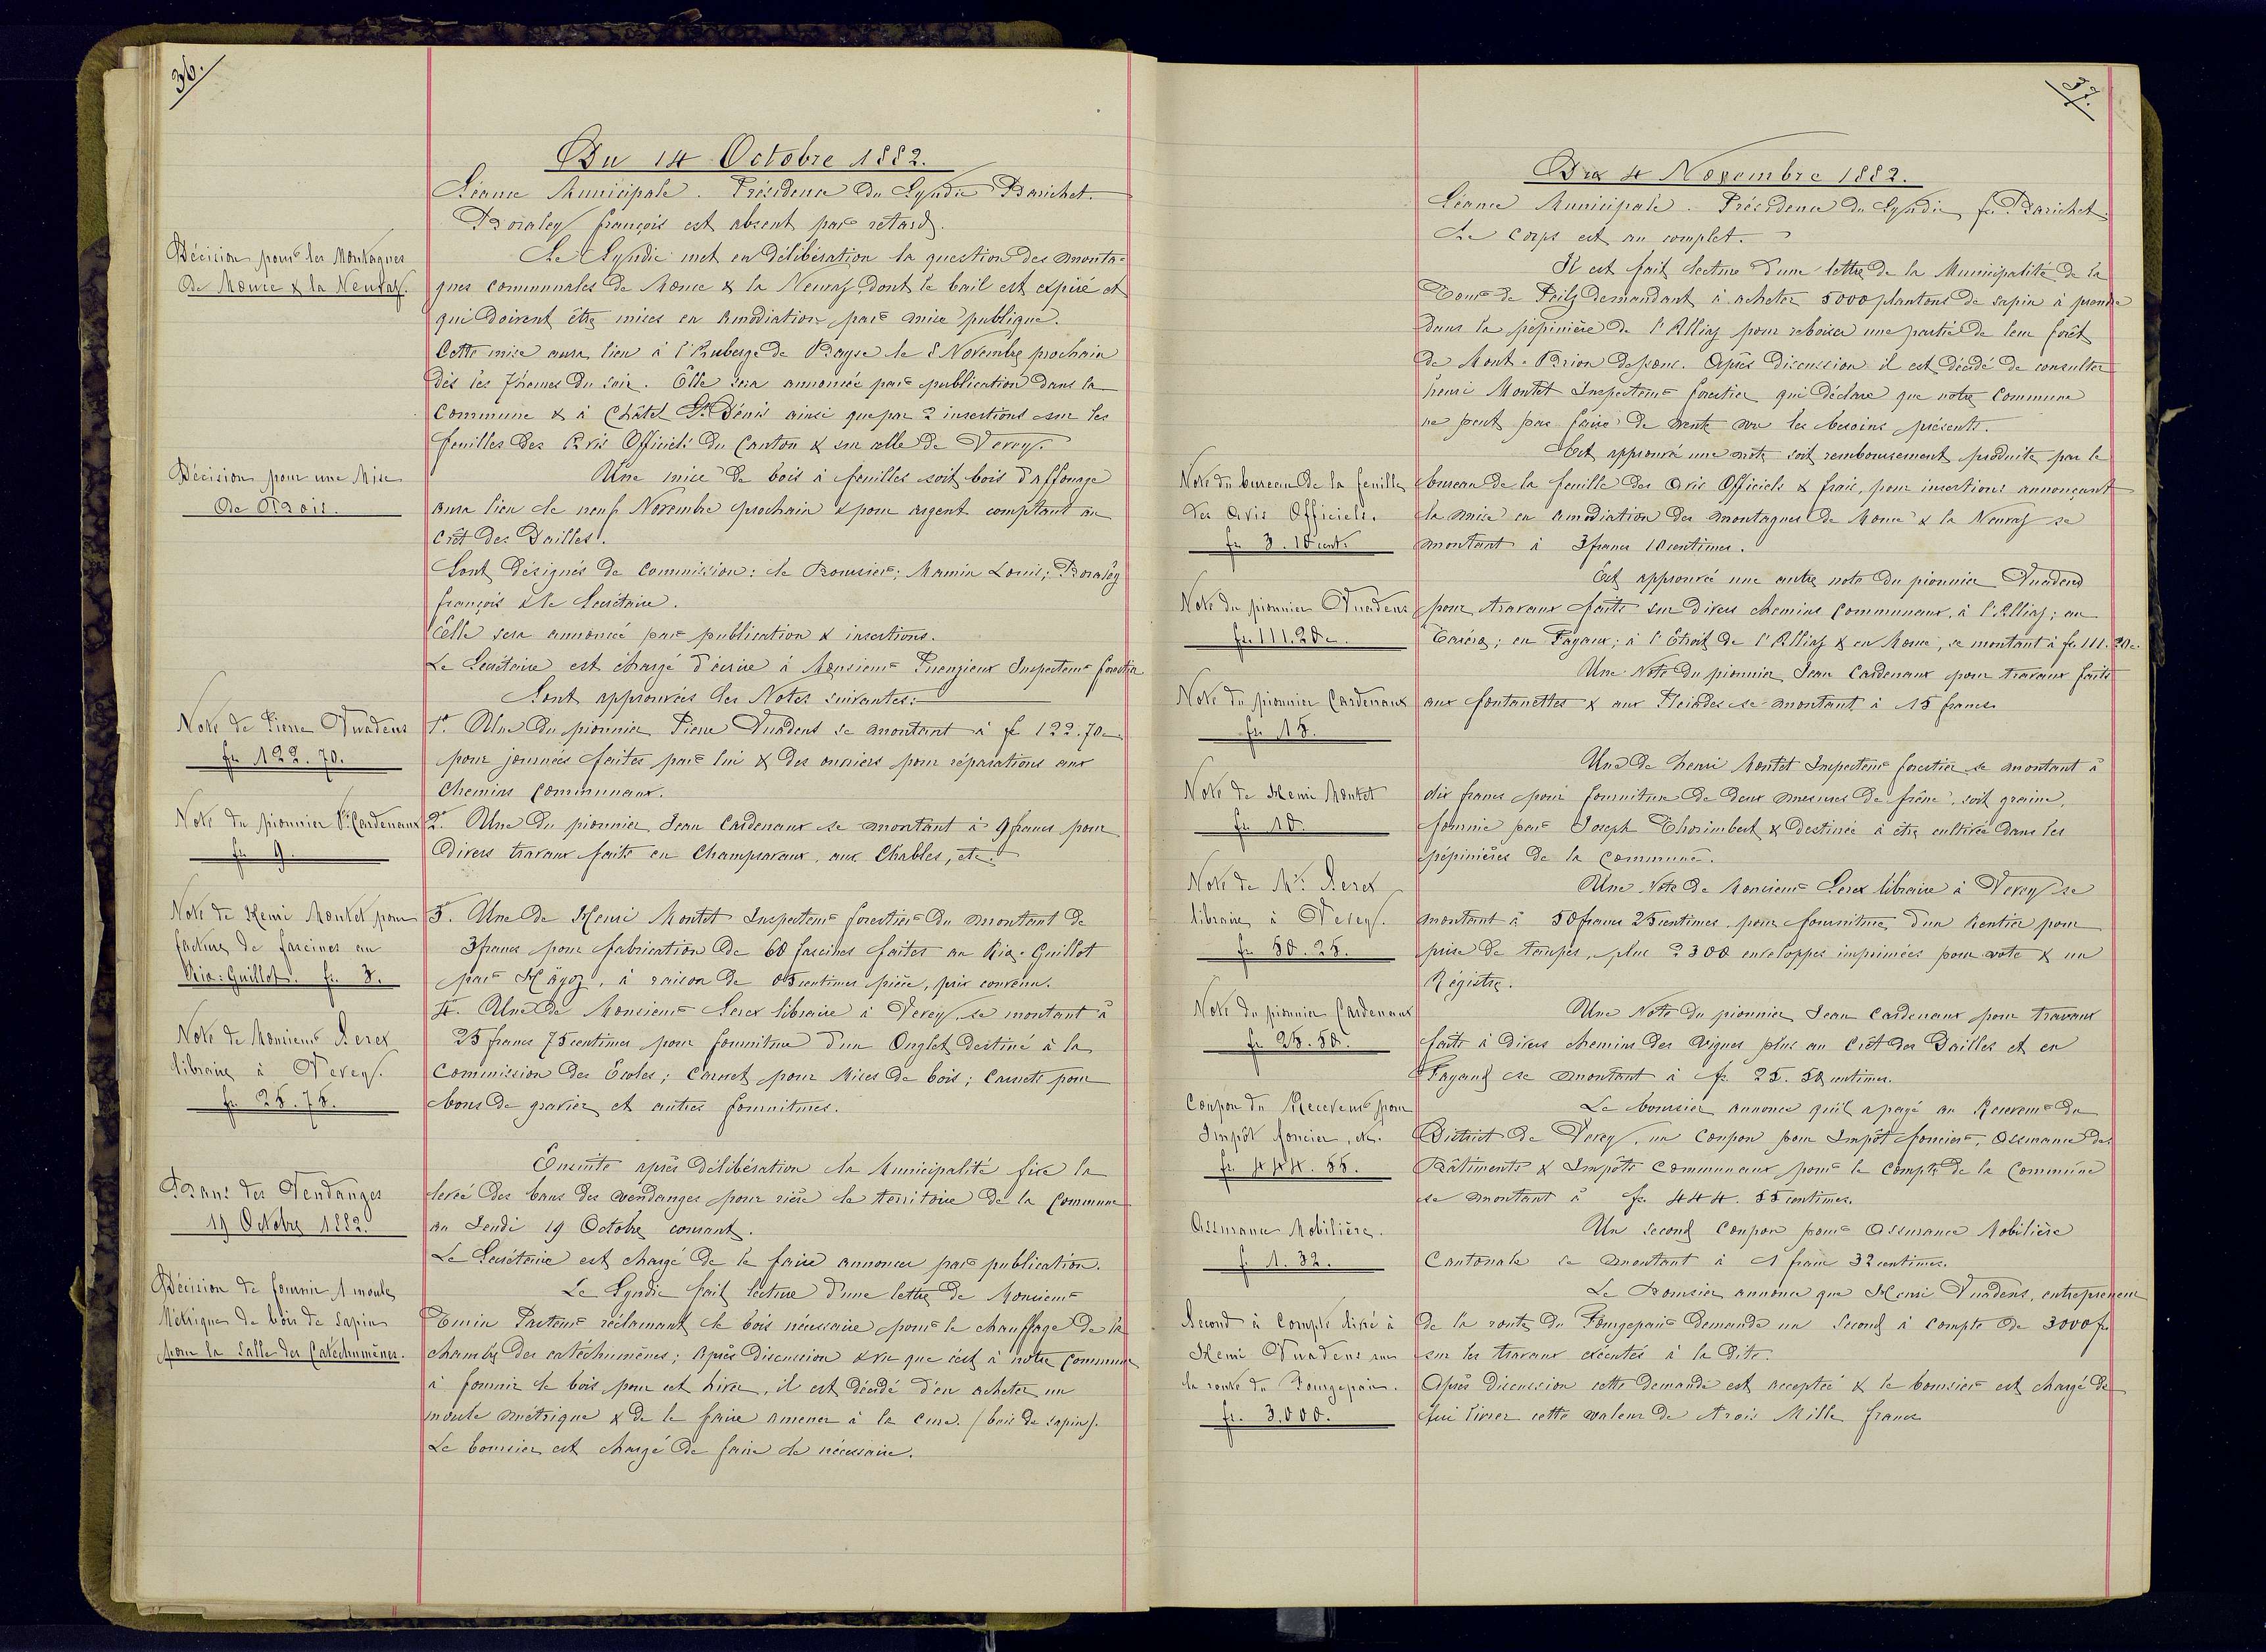 36.
Du 14 Octobre 1882.
Séance Municipale. Présidence du Syndic Barichet.
Boraley françois est absent par retard.
Décision pour les Montagnes
de Mouce & la Neuvaz.
Le Syndic met en délibération la question des monta-
gnes communales de Mouce & la Neuvaz, dont le bail est expiré et
qui doivent être mises en Amodiation par mise publique.
Cette mise aura lieu à l'Auberge de Bayse le 8 Novembre prochain
dès les 7 heures du soir. Elle sera annoncée par publication dans la
Commune & à Châtel St Dénis ainsi que par 2 insertions sur les
feuilles des Avis Officiels du Canton & sur celle de Vevey.
Décision pour une Mise
de Bois.
Une mise de bois à feuilles soit bois d'affouage
aura lieu le neuf Novembre prochain & pour argent comptant au
crêt des Dailles.
Sont désignés de Commission: le Boursier; Mamin Louis; Boraley
françois & le Secrétaire.
Celle sera annoncée par publication & insertions.
Le Secrétaire est chargé d'écrire à Monsieur Puenzieux Inspecteur forestier
Sont approuvées les Notes suivantes:
Note de Pierre Vuadens
fr 122.70.
1° Une du pionnier Pierre Vuadens se montant à fr 122.70 c
pour journées faites par lui & des ouvriers pour réparations aux
Chemins Communaux.
Note du pionnier Jn Cardenaux
fr 9.
2° Une du pionnier Jean Cardenaux se montant à 9 francs pour
divers travaux faits en Champsavaux, aux Chables, etc.
Note de Henri Montet pour
facture de fascines au
Ria-Guillot. fr. 3.
3. Une de Henri Montet Inspecteur forestier du montant de
3 francs pour fabrication de 60 fascines faites au Ria-Guillot
par Mayoz, à raison de 05 centimes pièce, prix convenu.
Note de Monsieur Lerex
libraire à Vevey.
fr. 25.75.
4. Une de Monsieur Lerex libraire à Vevey, se montant à
25 francs 75 centimes pour fourniture d'un Onglet destiné à la
Commission des Ecoles; Carnet pour Mises de bois; Carnets pour
bons de gravier et autres fournitures.
Bans des Vendanges
19 Octobre 1882.
Ensuite après délibération la Municipalité fixe la
levée des bans des vendanges pour rière le territoire de la Commune
au Jeudi 19 Octobre courant.
Le Secrétaire est chargé de le faire annoncer par publication.
Décision de fournir 1 moule
Métrique de bois de sapin
pour la Salle des Catéchumènes.
Le Syndic fait lecture d'une lettre de Monsieur
Pasteur réclamant le bois nécessaire pour le chauffage de la
chambre des catéchumènes; Après discussion & vu que c'est à notre Commune
à fournir le bois pour cet hiver, il est décidé d'en acheter un
moule métrique & de le faire amener à la Cure. (bois de sapin).
Le boursier est chargé de faire le nécessaire.
37.
Du 4 Novembre 1882.
Séance Municipale. Présidence du Syndic fs Barichet.
Le Corps est au complet.
Il est fait lecture d'une lettre de la Municipalité de la
Tour de Peilz demandant à acheter 5000 plantons de sapin à prendre
dans la pépinière de l'Alliaz pour reboiser une partie de leur forêt
de Mont-Brion dessous. Après discussion il est décidé de consulter
henri Montet Inspecteur forestier qui déclare que notre Commune
ne peut pas faire de vente vu les besoins présents.
Note du bureau de la feuille
des Avis Officiels.
fr 3.10 cent.
Est approuvé une note soit remboursement produite par le
bureau de la feuille des Avis Officiels & frais, pour insertions annonçant
la mise en Amodiation des montagnes de Mouce & la Neuvaz se
montant à 3 francs 10 centimes.
Note du pionnier Vuadens
fr. 111.20 c.
Est approuvée une autre note du pionnier Vuadens
pour travaux faits sur divers chemins Communaux, à l'Alliaz; au
en Fayaux; à l'Etroit de l'Alliaz & en Mouce, se montant à fr 111.20 c.
Note du pionnier Cardenaux
fr 15.
Une Note du pionnier Jean Cardenaux pour travaux faits
aux fontanettes & aux Pleiades se montant à 15 francs.
Note de Henri Montet
fr 10.
Une de henri Montet Inspecteur forestier se montant à
dix francs pour fourniture de deux mesures de frêne, soit graine,
fournie par Joseph Thorimbert & destinée à être cultivée dans les
pépinières de la Commune.
Note de Mr Lerex
libraire à Vevey.
fr 50.25.
Une Note de Monsieur Lerex libraire à Vevey se
montant à 50 francs 25 centimes, pour fourniture d'un Rentier pour
prise de temps, plus 2300 enveloppes imprimées pour vote & un
Régistre.
Note du pionnier Cardenaux
fr 25.50.
Une Note du pionnier Jean Cardenaux pour travaux
faits à divers chemins des vignes plus au Crêt des Dailles et en
Fayaux se montant à fr. 25.50 centimes.
Coupon du Receveur pour
Impôt foncier, etc.
fr 444.55.
Le boursier annonce qu'il a payé au Receveur du
District de Vevey, un Coupon pour Impôt foncier, Assurance des
Bâtiments & Impôts Communaux pour le Compte de la Commune
se montant à fr. 444.55 centimes.
Assurance Mobilière.
fr. 1.32.
Un second Coupon pour Assurance Mobilière
Cantonale se montant à 1 franc 32 centimes.
Second à Compte livré à
Henri Vuadens sur
la route du Fougepair.
fr. 3,000.
Le Boursier annonce que Henri Vuadens, entrepreneur
de la route du Fougepair demande un Second à Compte de 3000 fr
sur les travaux exécutés à la dite.
Après discussion cette demande est acceptée & le boursier est chargé de
lui livrer cette valeur de trois Mille francs